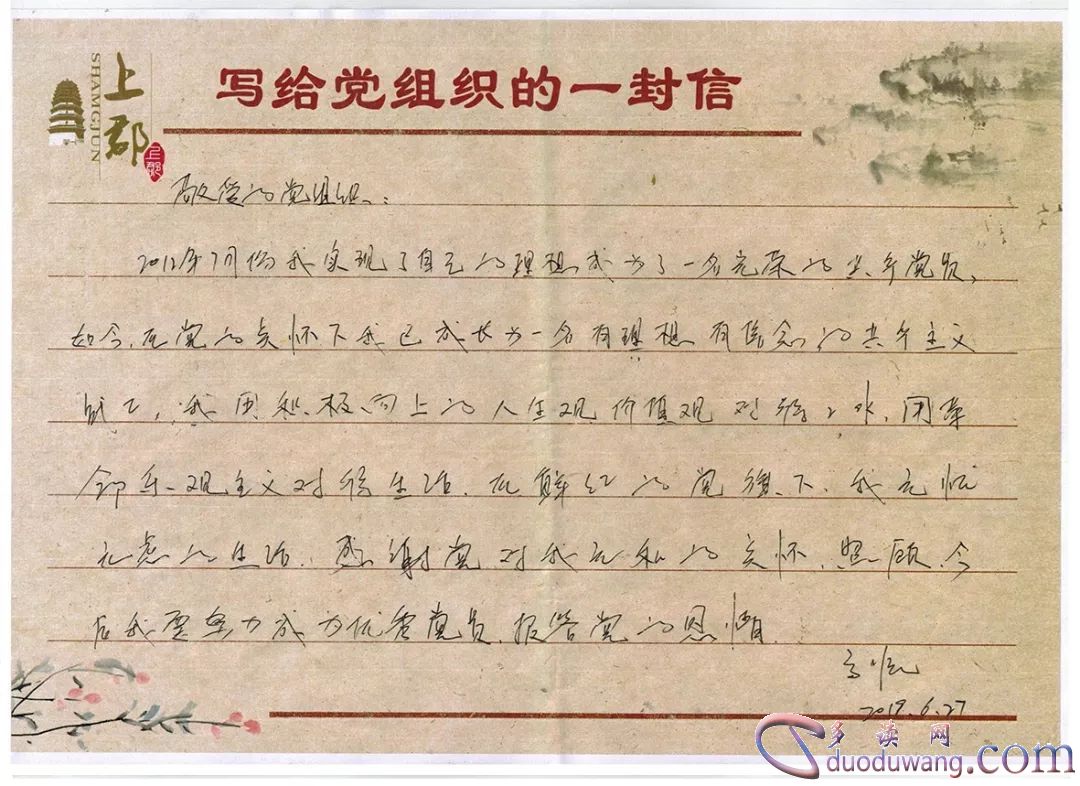 上郡
SHAMGJUN
上郡
写给党组织的一封信
敬爱的党组织:
2012年7月份我实现了自己的理想成为了一名光荣的共产党员,
如今,在党的关怀下我已成长为一名有理想有信念的共产主义
战士,我用积极向上的人生观价值观对待工作,用革
命乐观主义对待生活.在鲜红的党旗下,我无忧
无虑的生活.感谢党对我无私的关怀照顾.今
后我要努力成为优秀党员,报答党的恩情.
2018.6.27
多读网
duoduwang.com